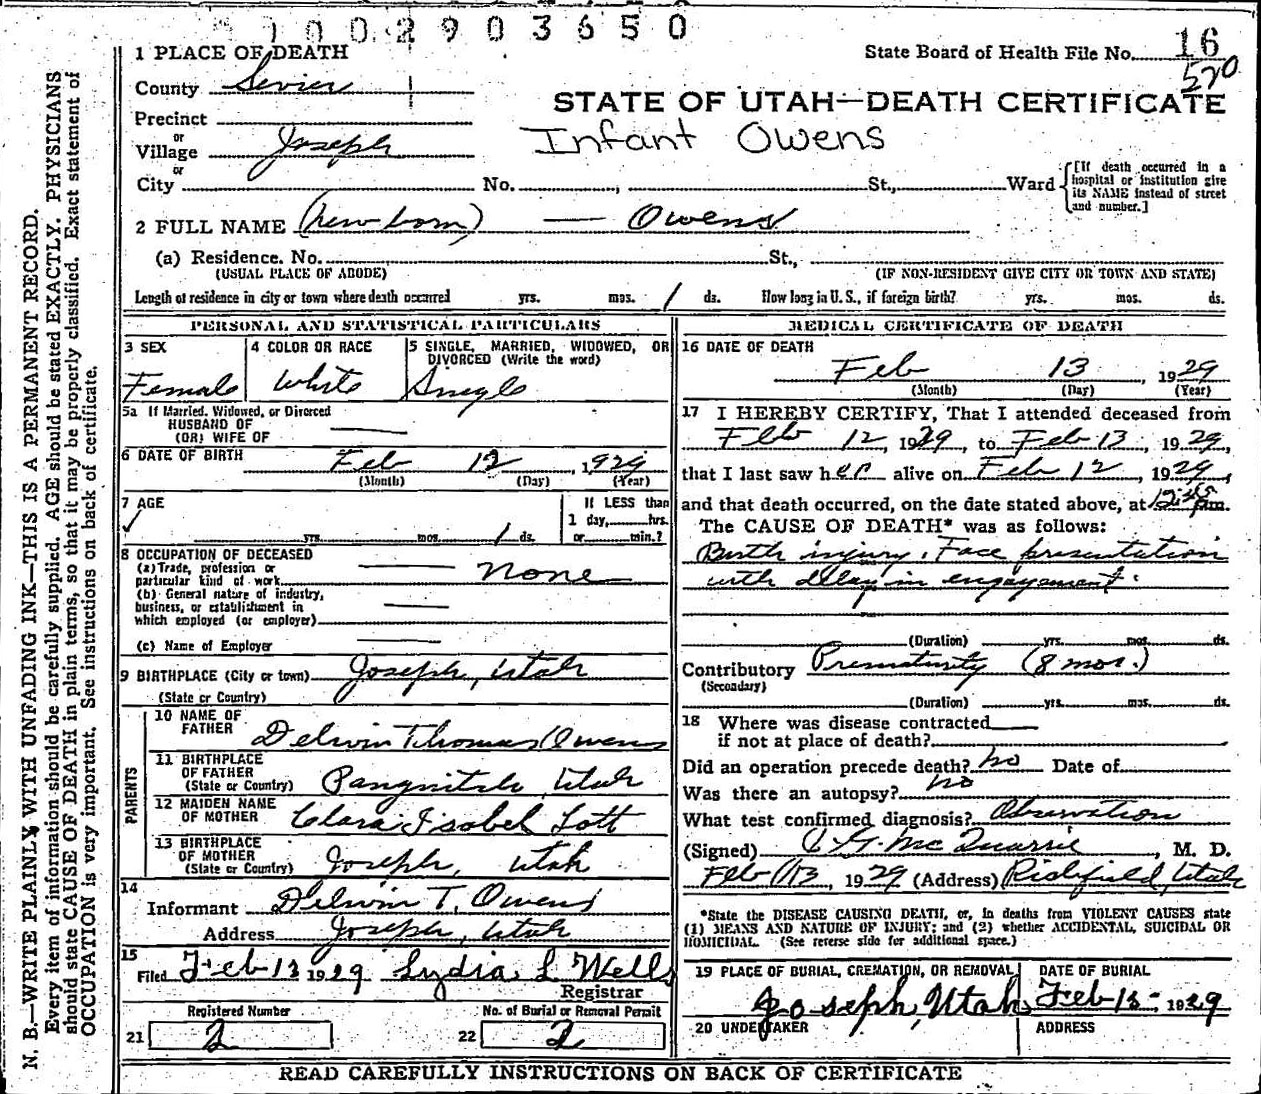 1002903650
1 PLACE OF DEATH
State Board of Health File No. 16
570
County Sevier
STATE OF UTAH—DEATH CERTIFICATE
Precinct
Infant Owens
or
Village Joseph
or
City No. , St., Ward
[If death occurred in a hospital or institution give its NAME instead of street and number.]
2 FULL NAME (new born) — Owens
(a) Residence. No. St.,
(USUAL PLACE OF ABODE) (IF NON-RESIDENT GIVE CITY OR TOWN AND STATE)
Length of residence in city or town where death occurred yrs. mos. 1 ds. How long in U. S., if foreign birth? yrs. mos. ds.
PERSONAL AND STATISTICAL PARTICULARS
3 SEX Female
4 COLOR OR RACE White
5 SINGLE, MARRIED, WIDOWED, OR DIVORCED (Write the word) Single
5a If Married, Widowed, or Divorced
HUSBAND OF
(OR) WIFE OF —
6 DATE OF BIRTH Feb 12, 1929
(Month) (Day) (Year)
7 AGE
yrs. mos. 1 ds.
If LESS than
1 day, hrs.
or min.?
8 OCCUPATION OF DECEASED
(a) Trade, profession or
particular kind of work — none
(b) General nature of industry,
business, or establishment in
which employed (or employer) —
(c) Name of Employer —
9 BIRTHPLACE (City or town) Joseph, Utah
(State or Country)
PARENTS
10 NAME OF
FATHER Delwin Thomas Owens
11 BIRTHPLACE
OF FATHER
(State or Country) Panguitch, Utah
12 MAIDEN NAME
OF MOTHER Clara Isobel Lott
13 BIRTHPLACE
OF MOTHER
(State or Country) Joseph, Utah
14
Informant Delwin T. Owens
Address Joseph, Utah
15
Filed Feb 13 1929 Lydia L Wells
Registrar
Registered Number
21 2
No. of Burial or Removal Permit
22 2
MEDICAL CERTIFICATE OF DEATH
16 DATE OF DEATH
Feb 13, 1929
(Month) (Day) (Year)
17 I HEREBY CERTIFY, That I attended deceased from
Feb 12, 1929, to Feb 13, 1929,
that I last saw her alive on Feb 12, 1929,
and that death occurred, on the date stated above, at 12:45 m.
The CAUSE OF DEATH* was as follows:
Birth injury. Face presentation
with delay in engagement.
(Duration) yrs. mos. ds.
Contributory Prematurity (8 mos.)
(Secondary)
(Duration) yrs. mos. ds.
18 Where was disease contracted —
if not at place of death?
Did an operation precede death? no Date of
Was there an autopsy? no
What test confirmed diagnosis? Observation
(Signed) G. McQuarrie, M. D.
Feb 13, 1929 (Address) Richfield, Utah
*State the DISEASE CAUSING DEATH, or, in deaths from VIOLENT CAUSES state
(1) MEANS AND NATURE OF INJURY; and (2) whether ACCIDENTAL, SUICIDAL OR
HOMICIDAL. (See reverse side for additional space.)
19 PLACE OF BURIAL, CREMATION, OR REMOVAL
Joseph, Utah
DATE OF BURIAL
Feb 13-1929
20 UNDERTAKER
ADDRESS
READ CAREFULLY INSTRUCTIONS ON BACK OF CERTIFICATE
N. B.—WRITE PLAINLY WITH UNFADING INK—THIS IS A PERMANENT RECORD.
Every item of information should be carefully supplied. AGE should be stated EXACTLY. PHYSICIANS
should state CAUSE OF DEATH in plain terms, so that it may be properly classified. Exact statement of
OCCUPATION is very important. See instructions on back of certificate.